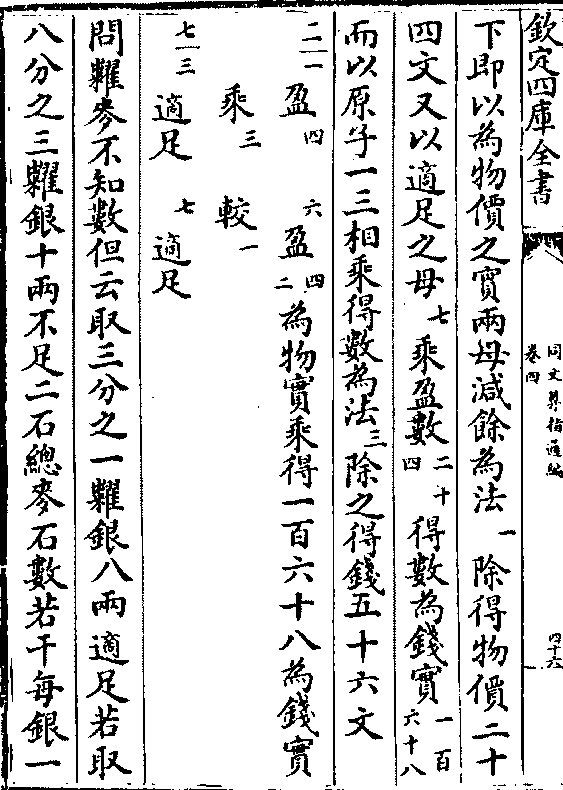 欽定四庫全書
同文筭指通編
卷四
四十六
下即以為物價之實兩母減餘為法一除得物價二十
四文又以適足之母七乘盈數二十四得數為錢實一百六十八
而以原子一三相乘得數為法三除之得錢五十六文
二一 盈四 六盈二四為物實乘得一百六十八為錢實
乘三 較一
七三 適足 七適足
問糴麥不知數但云取三分之一糴銀八兩適足若取
八分之三糴銀十兩不足二石總麥石數若干每銀一